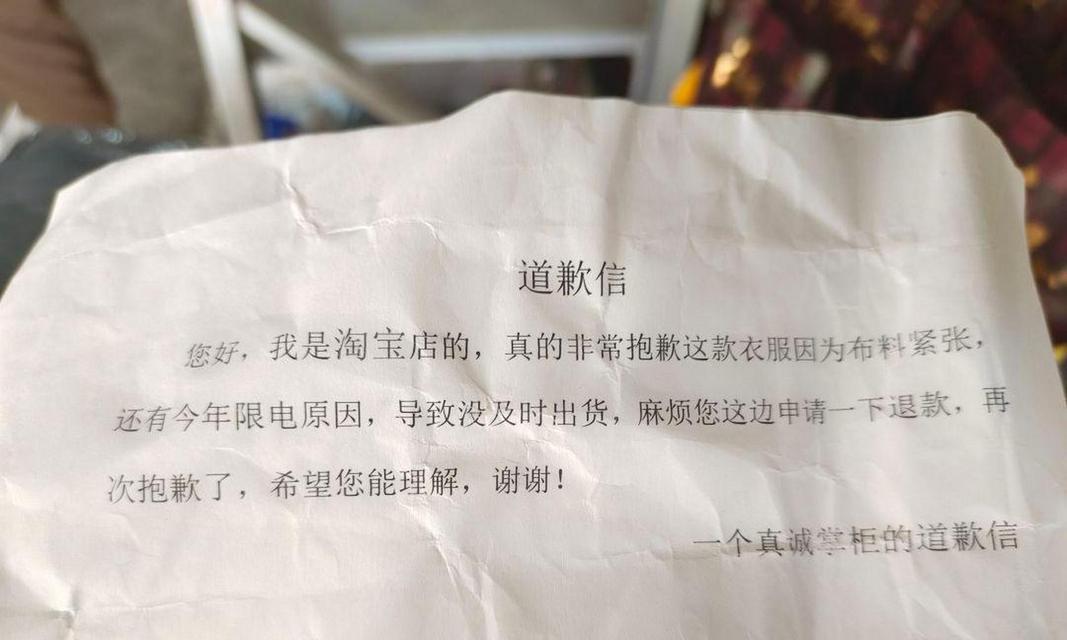 道歉信
您好，我是淘宝店的，真的非常抱歉这款衣服因为布料紧张，
还有今年限电原因，导致没及时出货，麻烦您这边申请一下退款，再
次抱歉了，希望您能理解，谢谢！
一个真诚掌柜的道歉信